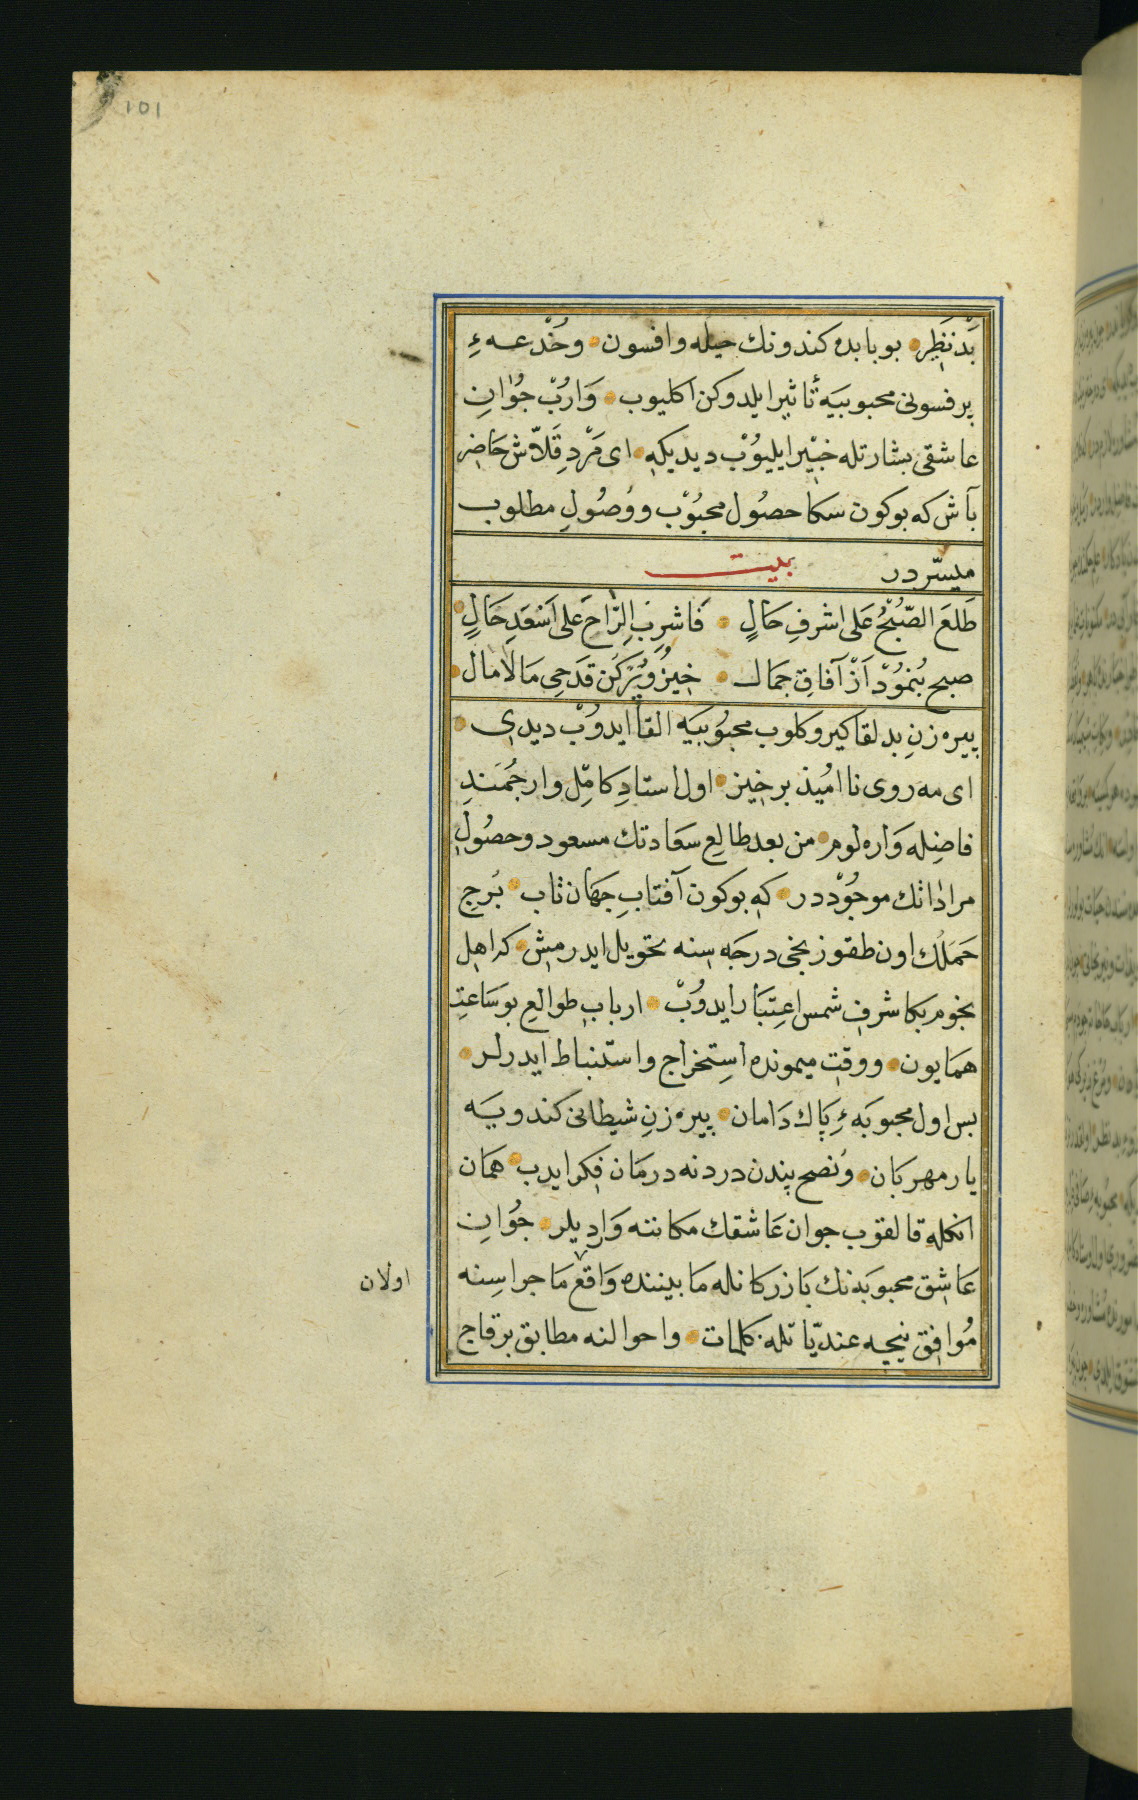 101
بَدْ نَظَرِ بو بابده كندونك حيله وافسون وخُدعهءِ
پر فسونى محبوبيَه تأثير ايلدوكن اكليوب وَارُبْ جُوانِ
عاشقى بشارتله خبير ايليوُبْ ديديكه اى مَرْدِ قَلاّش حَاضِر
بآش كه بوكون سكا حصُول محبُوْب ووُصُولِ مطلوب
ميسّر در بيت
طَلعَ الصّبْحُ عَلى اشرفِ حَالٍ فَاشرِبِ الرّاحَ عَلى اَسْعَدِ حَالٍ
صبح بُنمُوْد اَزْ آفاق جمال خِيزُ وپُرْ كُن قدَحِى مَالاَمَال
پيره زنِ بد لقا كيرو كلوب محبُوبيَه القا ايدوُبْ ديدى
اى مه روى نا امُيذ برخيز اول استادِ كامِل وارجُمَندِ
فاضِله وَاره لوم من بعد طالعِ سعَادتك مسعود وحصُولِ
مراداتك موجُوْددر كه بوكون آفتابِ جهَان تاب بُرجِ
حَمَلُك اون طقوزنجى درجَه سِنه تحويل ايدرمِش كه اهل
نجوم بكا شرفِ شمس اعِتبَار ايدوُبْ اربابِ طوالعِ بو سَاعتِ
همَايون ووقتِ ميمونده استِخراج واستنباط ايدرلر
بس اول محبوبَهءِ پَاك دَامان پيره زنِ شيطانى كندويَه
يار مهربَان ونُصح پندن دردنه درمَان فِكر ايدب همَان
انكله قالقوب جوان عَاشقك مكاننه وَارديلر جُوانِ
عَاشِق محبوبَه نك بَازركانله مَا بيننده وَاقع مَاجراسِنه
اولان
مُوافِق نيجه عنديّاتله كلمات واحوالنه مطابق برقاج